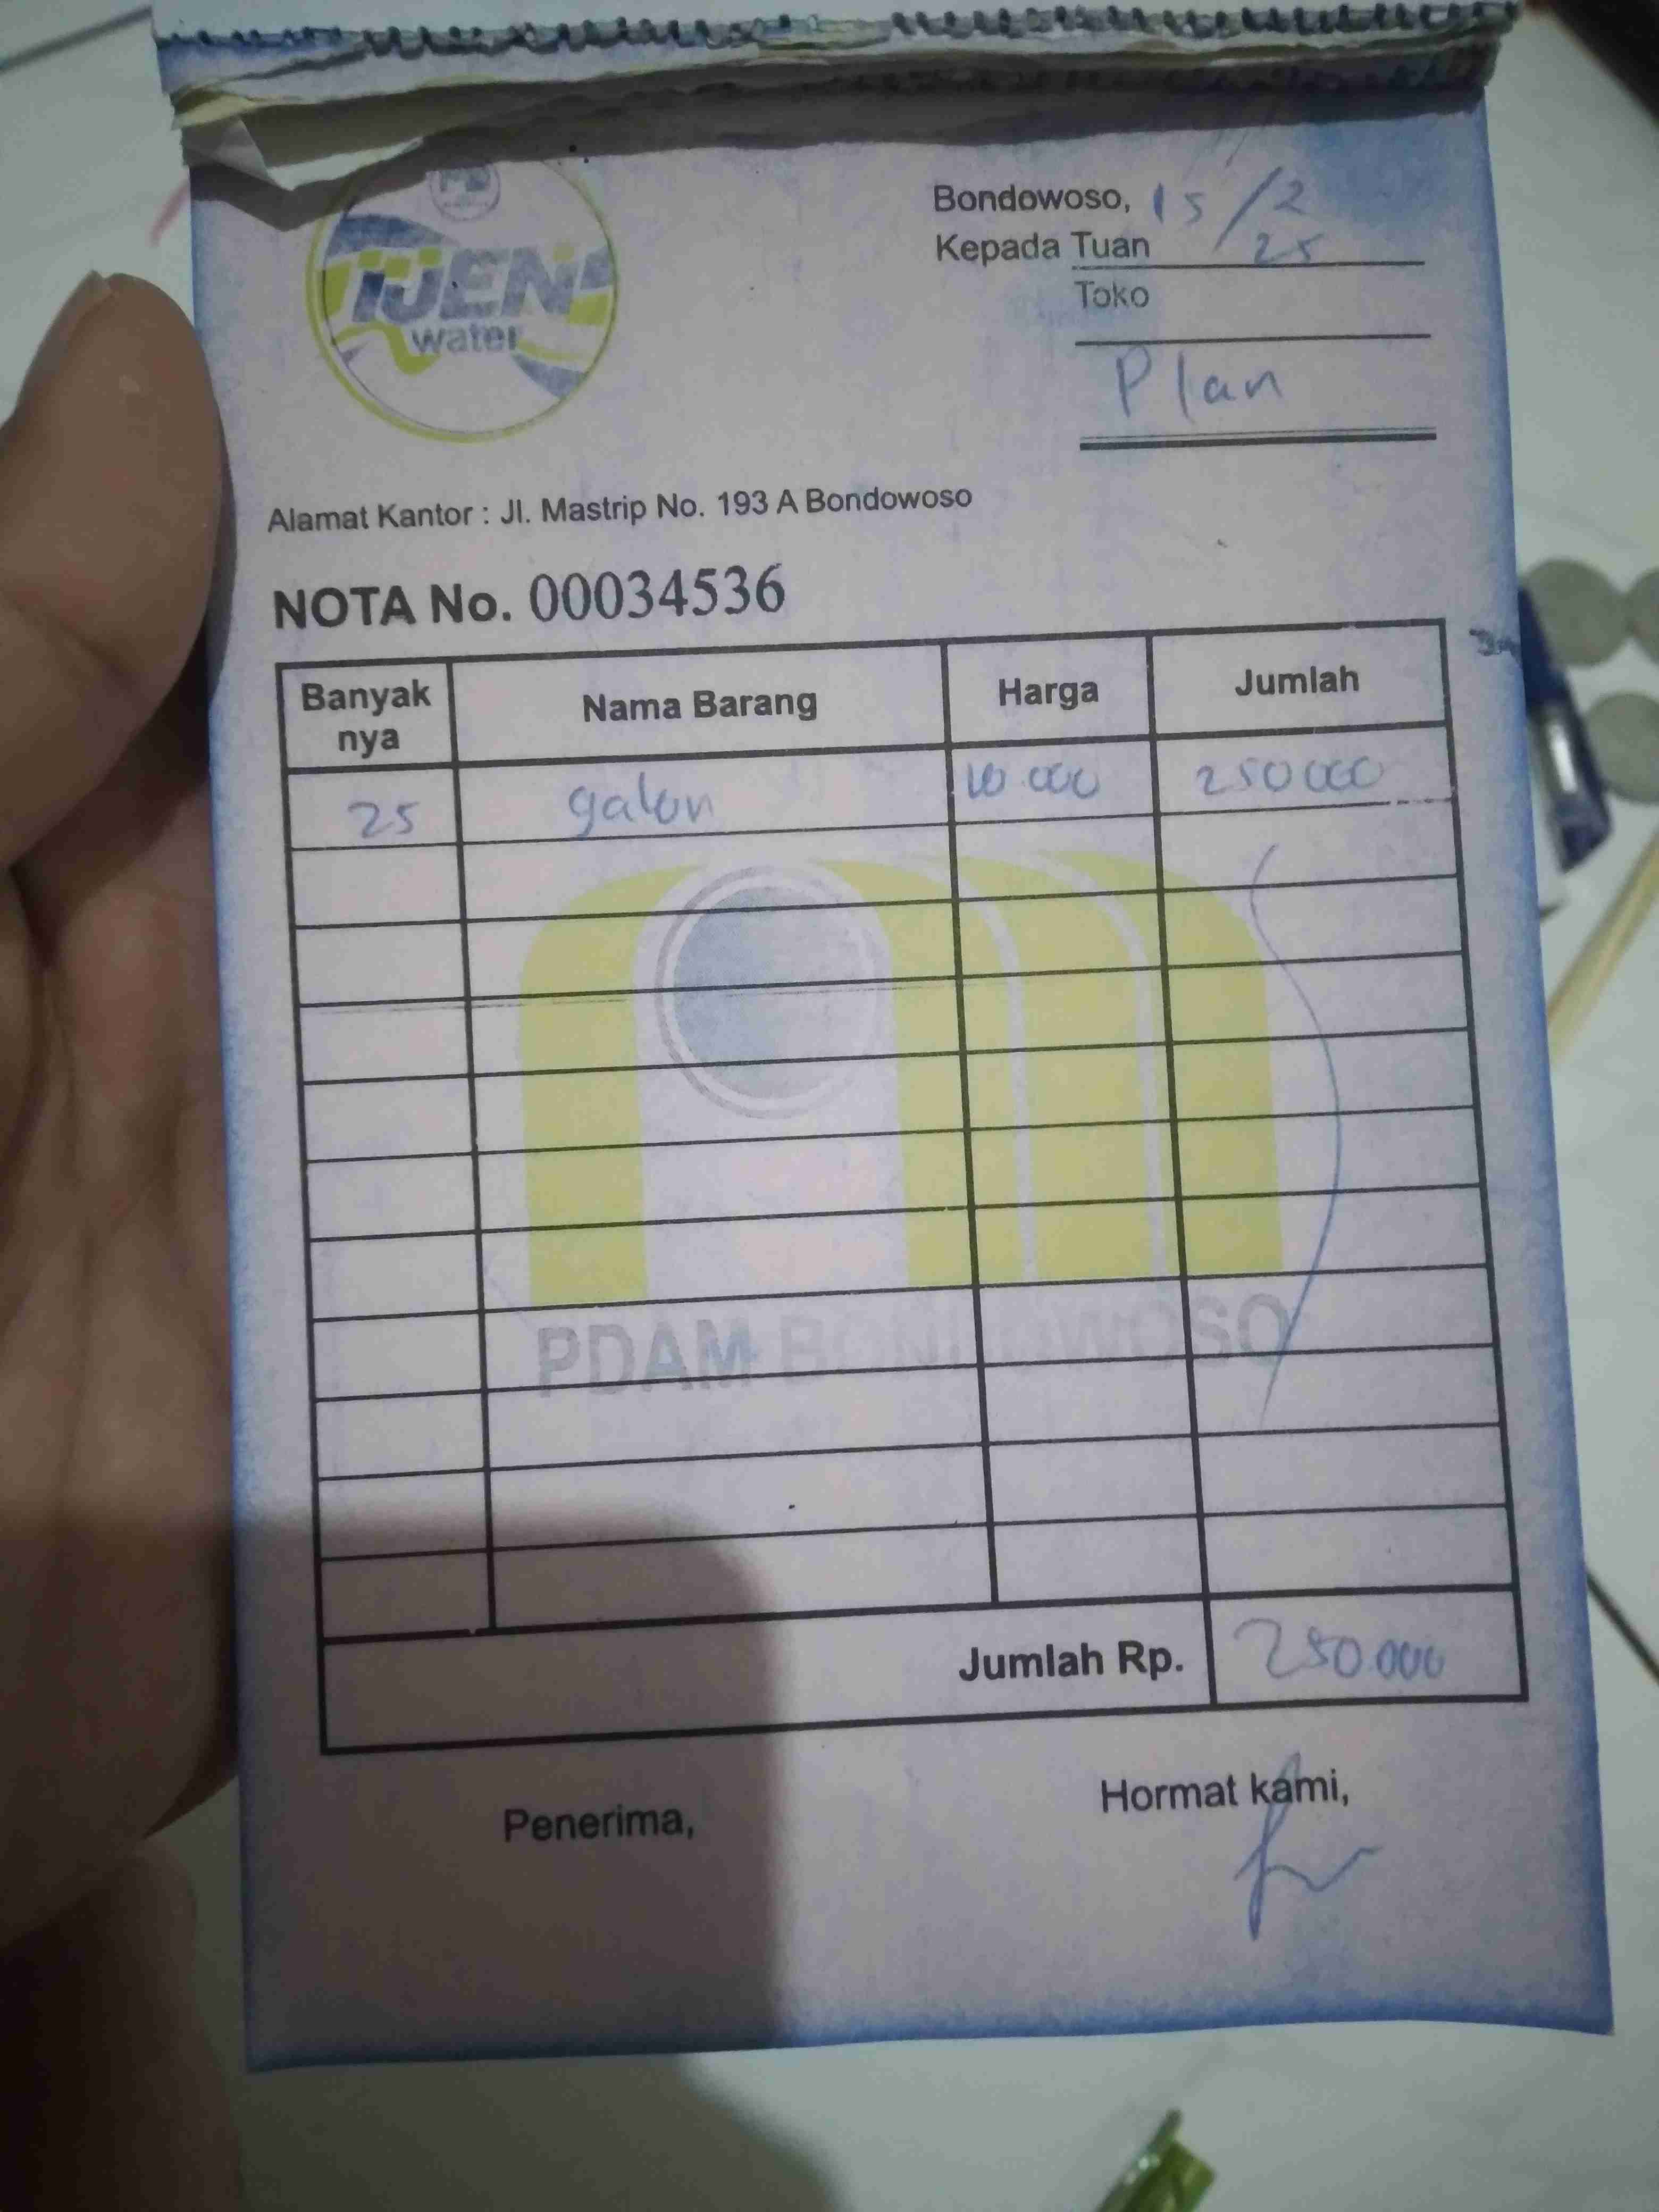 IJEN
water
Bondowoso, 15/2
25
Kepada Tuan
Toko
Plan
Alamat Kantor : Jl. Mastrip No. 193 A Bondowoso
NOTA No. 00034536
Banyak nya Nama Barang Harga Jumlah
25 galon 10.000 250000
PDAM BONDOWOSO
Jumlah Rp. 250.000
Penerima, Hormat kami,